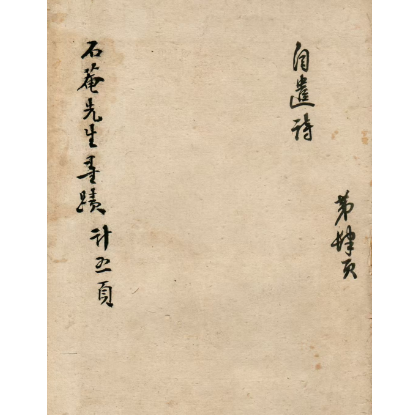 第肆頁
自遣詩
石菴先生墨蹟 計五頁